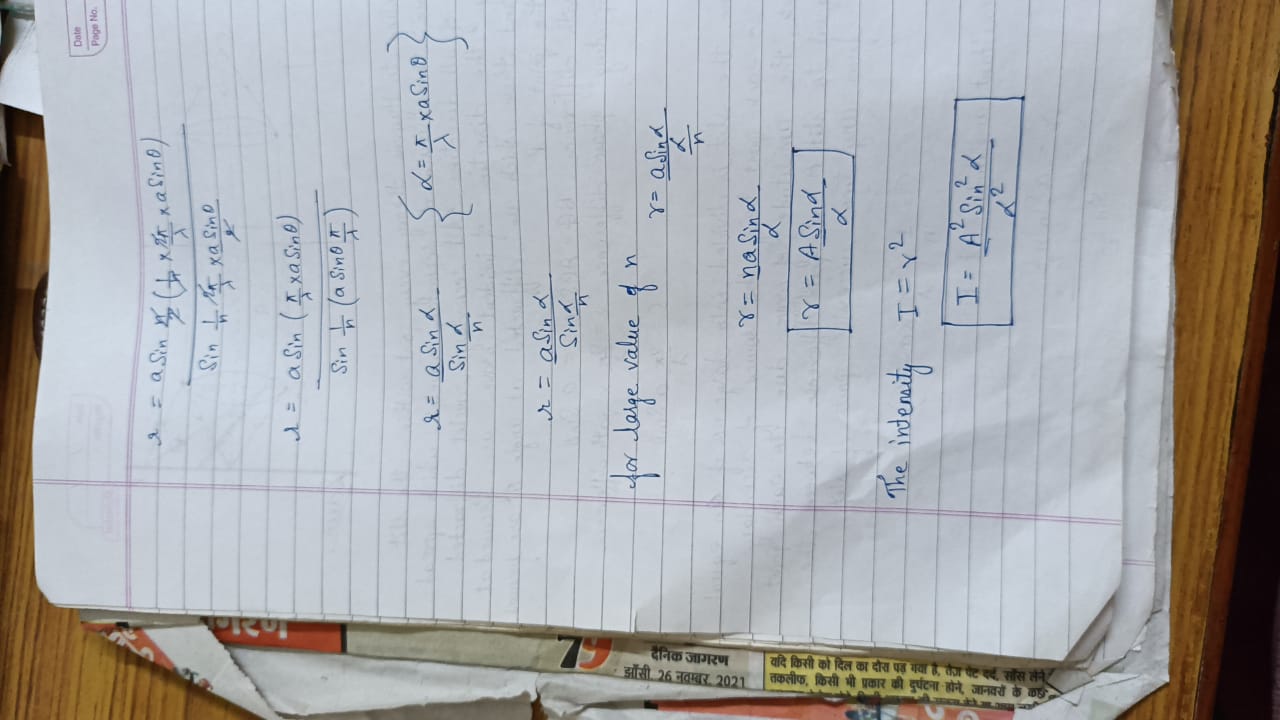 Date
Page No.
r = a Sin n/2 (1/n × 2π/λ × a Sinθ)
Sin 1/n 2π/λ × a Sinθ/2
r = a Sin (π/λ × a Sinθ)
Sin 1/n (a Sinθ π/λ)
r = a Sin α / Sin α/n { α = π/λ × a Sinθ }
r = a Sin α / Sin α/n
for large value of n r = a Sin α / α/n
r = na Sin α / α
r = A Sin α / α
The intensity I = r²
I = A² Sin² α / α²
गरण
79
दैनिक जागरण
झाँसी, 26 नवम्बर, 2021
यदि किसी को दिल का दौरा पड़ गया है, तेज़ पेट दर्द, साँस लेने
तकलीफ, किसी भी प्रकार की दुर्घटना होने, जानवरों के